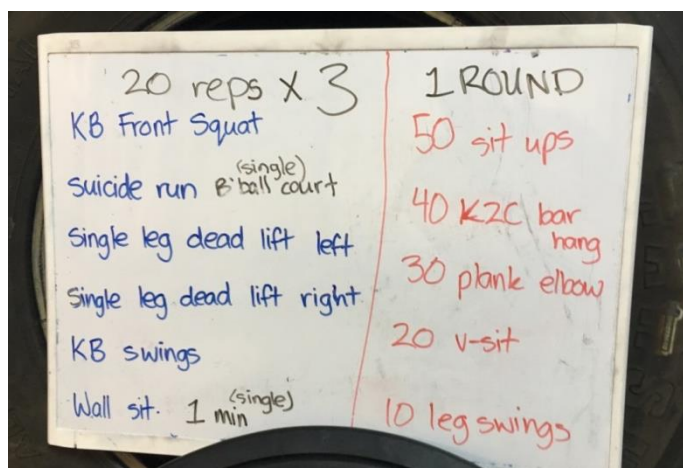 20 reps x 3
KB Front Squat
suicide run B'ball court
(single)
Single leg dead lift left
Single leg dead lift right
KB swings
Wall sit. 1 min
(single)
1 ROUND
50 sit ups
40 K2C bar
hang
30 plank elbow
20 v-sit
10 leg swings